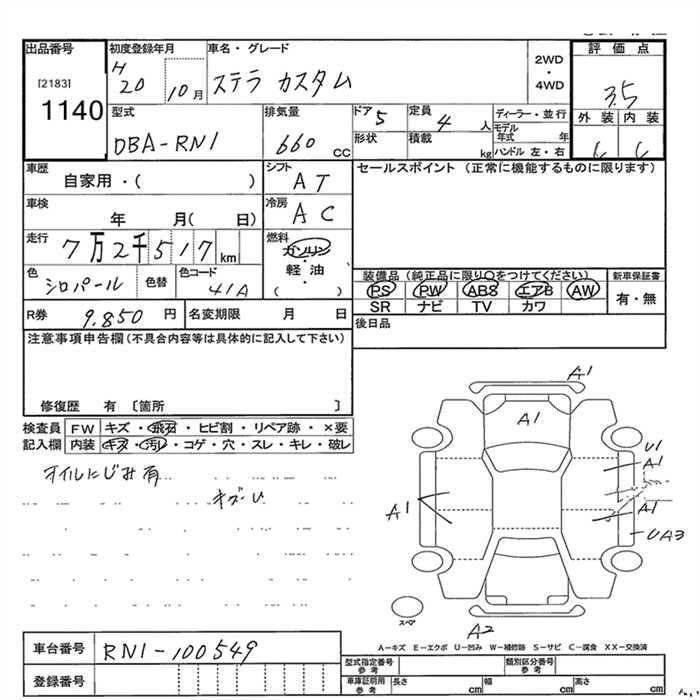 出品番号
[2183]
1140
初度登録年月
H 20 10月
車名・グレード
ステラ カスタム
2WD
・
4WD
評価点
3.5
外装 内装
C C
型式
DBA-RN1
排気量
660 cc
ドア 5
定員 4 人
形状
積載 kg
ディーラー・並行
モデル年式 年
ハンドル 左・右
車歴
自家用・( )
シフト
AT
車検
年 月( 日)
冷房
AC
走行
7万2千517km
燃料
ガソリン
・
軽油
・
( )
色
シロパール
色替
色コード
41A
セールスポイント (正常に機能するものに限ります)
装備品(純正品に限り○をつけてください)
PS PW ABS エアB AW
SR ナビ TV カワ
新車保証書
有・無
R券 9.850 円
名変期限 月 日
後日品
注意事項申告欄(不具合内容等は具体的に記入して下さい)
修復歴 有 [箇所 ]
検査員記入欄
FW キズ・飛石・ヒビ割・リペア跡・×要
内装 キズ・汚レ・コゲ・穴・スレ・キレ・破レ
オイルにじみ有
キズU
A1
A1
U1
A1
A1
A1
UA3
スペア
A2
A-キズ E-エクボ U-凹み W-補修跡 S-サビ C-腐食 XX-交換済
車台番号 RN1-100549
登録番号
型式指定番号 参考
類別区分番号 参考
車庫証明用 参考
長さ cm 幅 cm 高さ cm